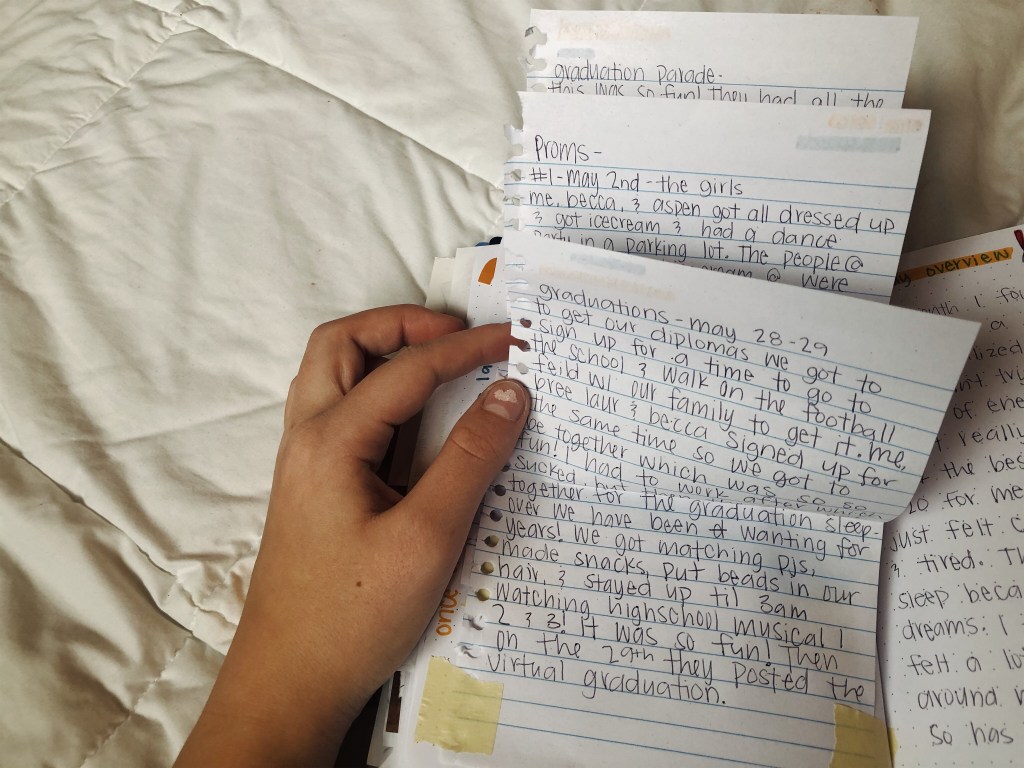 graduation parade-
this was so fun! they had all the
Proms-
#1-may 2nd-the girls
me, becca, & aspen got all dressed up
& got icecream & had a dance
party in a parking lot. The people@
@ were
graduations-may 28-29
to get our diplomas we got to
sign up for a time to go to
the school & walk on the football
feild w/ our family to get it. me,
bree laur & becca signed up for
the same time so we got to
be together which was so
fun! I had to work after which
sucked
together for the graduation sleep-
over we have been wanting for
years! we got matching pjs,
made snacks, put beads in our
hair, & stayed up til 3am
watching highschool musical 1
2 & 3! It was so fun! Then
on the 29th they posted the
virtual graduation.
overview
a
of
really
the bes
for me
just felt
& tired.
sleep beca
dreams. I
felt a lo
around
so has